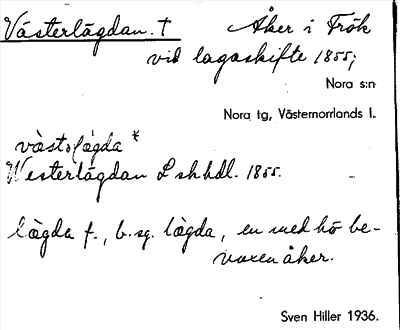 Västerlägdan. † Åker i Frök
vid lagaskifte 1855;
Nora s:n
Nora tg, Västernorrlands l.
västəlägda *
Westerlägdan L sk hdl. 1855.
lägda f., b. sg. lägda, en med hö be-
vuxen åker.
Sven Hiller 1936.